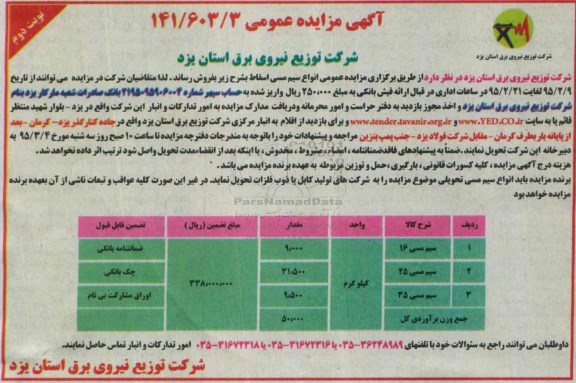 نوبت دوم
آگهی مزایده عمومی ۱۴۱/۶۰۳/۳
شرکت توزیع نیروی برق استان یزد
شرکت توزیع نیروی برق استان یزد
شرکت توزیع نیروی برق استان یزد در نظر دارد از طریق برگزاری مزایده عمومی انواع سیم مسی اسقاط بشرح زیر بفروش رساند، لذا متقاضیان شرکت در مزایده می توانند از تاریخ
۹۵/۲/۹ لغایت ۹۵/۲/۲۱ در ساعات اداری در قبال ارائه فیش بانکی به مبلغ ۲۵۰،۰۰۰ ریال واریز شده به حساب سپهر شماره بانک صادرات شعبه سازکار یزد بنام
شرکت توزیع نیروی برق استان یزد و اخذ مجوز بازدید به دفتر حراست و امور محرمانه ودریافت مدارک مزایده به امور تدارکات و انبار این شرکت واقع در یزد - بلوار شهید منتظر
قائم یا به سایت www.YED.CO.ir و www.tender.tavanir.org.ir و برای بازدید از اقلام به انبار مرکزی شرکت توزیع برق استان یزد واقع در جاده کنارگذر یزد - کرمان - بعد
از پایانه بار بطرف کرمان - مقابل شرکت فولاد یزد - جنب پمپ بنزین مراجعه و پیشنهادات خود را باتوجه به مندرجات دفترچه مزایده تا ساعت ۱۰ صبح روز سه شنبه مورخ ۹۵/۳/۴ به
دبیرخانه این شرکت تحویل نمایند. ضمناً به پیشنهادهای فاقد ضمانتنامه ، امضاء، مشروط ، مخدوش ، یا اینکه بعد از انقضاء مدت تحویل واصل شود ترتیب اثر داده نخواهد شد.
هزینه درج آگهی مزایده ، کلیه کسورات قانونی ، بارگیری ،حمل و توزین مربوطه به عهده برنده مزایده می باشد .
برنده مزایده باید انواع سیم مسی تحویلی موضوع مزایده را به شرکت های تولید کابل یا ذوب فلزات تحویل نماید. در غیر این صورت کلیه عواقب و تبعات ناشی از آن بعهده برنده
مزایده خواهد بود
ParsNamadData
ردیف شرح کالا واحد مقدار مبلغ تضمین (ریال ) تضمین قابل قبول
۱ سیم مسی ۱۶ کیلو گرم ۹،۰۰۰ ۳۳۸،۰۰۰،۰۰۰ ضمانتنامه بانکی
۲ سیم مسی ۲۵ ۳۱،۵۰۰ چک بانکی
۳ سیم مسی ۳۵ ۹،۵۰۰ اوراق مشارکت بی نام
جمع وزن برآوردی کل ۵۰،۰۰۰
داوطلبان می توانند راجع به سئوالات خود با تلفنهای ۳۶۲۴۸۹۸۹-۰۳۵ یا ۳۱۶۷۲۳۱۶-۰۳۵ یا ۳۱۶۷۲۳۱۸-۰۳۵ امور تدارکات و انبار تماس حاصل نمایند.
شرکت توزیع نیروی برق استان یزد